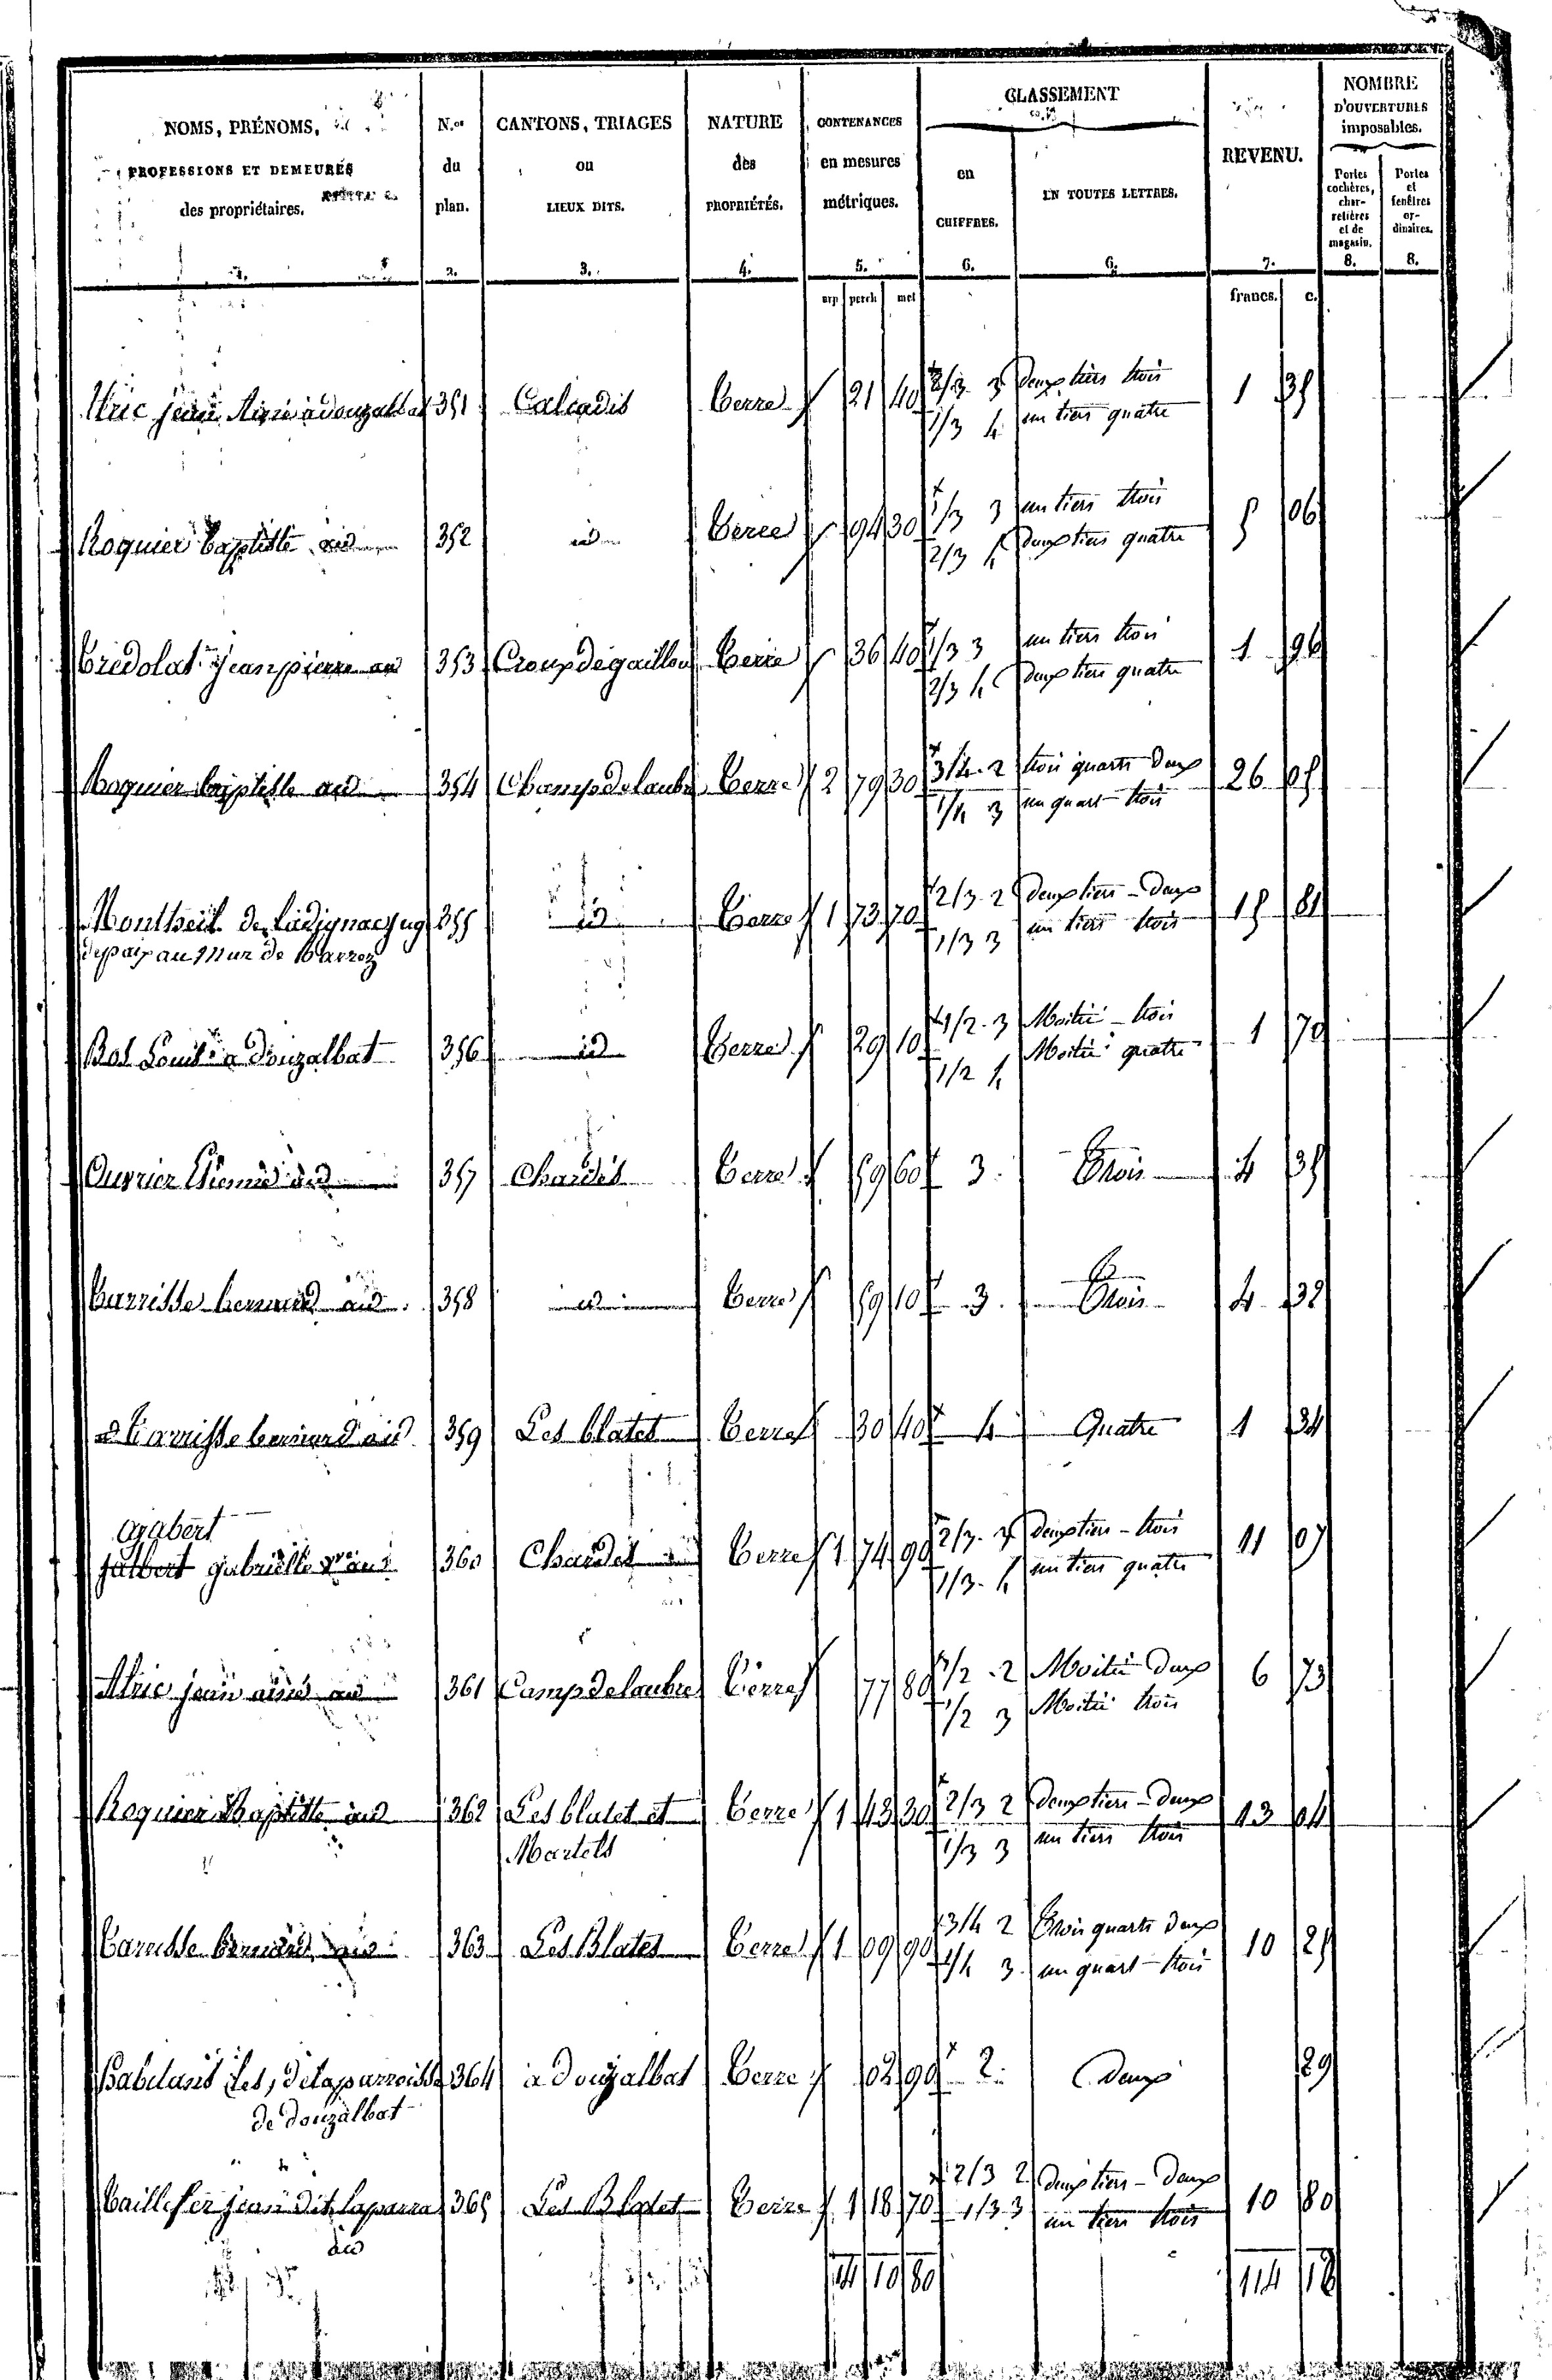 NOMS, PRÉNOMS,
PROFESSIONS ET DEMEURES
des propriétaires.
1.
N.os
du
plan.
2.
CANTONS, TRIAGES
ou
LIEUX DITS.
3.
NATURE
des
PROPRIÉTÉS.
4.
CONTENANCES
en mesures
métriques.
5.
CLASSEMENT
en
CHIFFRES.
6.
EN TOUTES LETTRES.
6.
REVENU.
7.
NOMBRE
D'OUVERTURES
imposables.
Portes
cochères,
char-
retières
et de
magasin.
8.
Portes
et
fenêtres
or-
dinaires.
8.
arp perch met francs. c.
2/3 3 deux tiers trois
Alric jean Ainé a douzalbat 351 Calcadis Terre 21 40 1 35
1/3 4 un tiers quatre
1/3 3 un tiers trois
Roquier Baptiste aud 352 id Terre 94 30 5 06
2/3 4 deux tiers quatre
1/3 3 un tiers trois
Tredolat Jean pierre au 353 Croux de gaillou Terre 36 40 1 96
2/3 4 deux tiers quatre
3/4 2 trois quarts deux
Roquier baptiste aud 354 Champ de laubre Terre 2 79 30 26 05
1/4 3 un quart trois
2/3 2 deux tiers - deux
Montheil de Ladignac jug 355 id Terre 1 73 70 15 81
1/3 3 un tiers trois
de paix au Mur de Barrez
1/2 3 Moitié - trois
Bos Louis a Douzalbat 356 id Terre 29 10 1 70
1/2 4 Moitié quatre
Ouvrier Etienne aud 357 Chardès Terre 59 60 3 Trois 4 35
Carrisse bernard aud 358 id Terre 59 10 3 Trois 4 32
Carrisse bernard aud 359 Les blates Terre 30 40 4 Quatre 1 34
Gabert
jalbert gabrielle ve aud 360 Chardes Terre 1 74 90 11 07
2/3 3 deux tiers - trois
1/3 4 un tiers quatre
1/2 2 Moitié deux
Alric jean ainé aud 361 Camp de laubre Terre 77 80 6 73
1/2 3 Moitié trois
2/3 2 deux tiers - deux
Roquier Baptiste aud 362 Les blates et Terre 1 43 30 13 04
Martels
1/3 3 un tiers trois
3/4 2 Trois quarts deux
Carrisse bernard aud 363 Les Blates Terre 1 09 90 10 25
1/4 3 un quart - trois
habitans les, de la parroisse 364 a Douzalbat Terre 02 90 2 deux 29
de douzalbat
2/3 2 deux tiers - deux
Taillefer jean dit laparra 365 Les Blates Terre 1 18 70 10 80
1/3 3 un tiers trois
aud
14 10 80 114 12